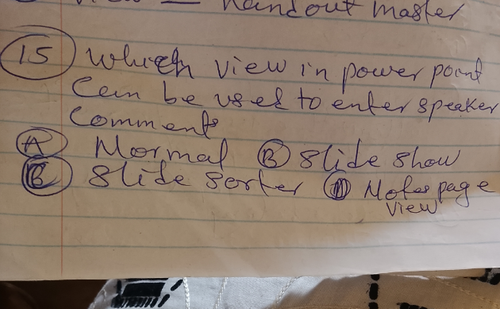 View — Handout master
(15) Which view in power point
Can be used to enter speaker
Comments
(A) Normal (B) Slide show
(C) Slide Sorter (D) Notes page
view